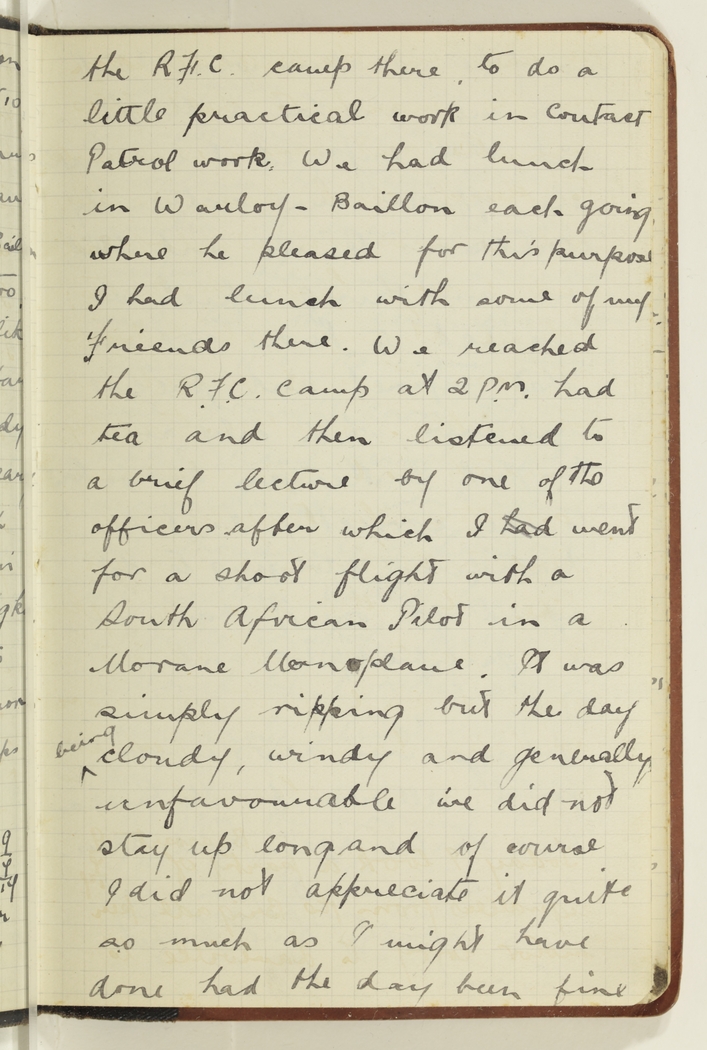 the R.F.C. camp there, to do a
little practical work in Contact
Patrol work. We had lunch
in Warloy-Baillon each going
where he pleased for this purpose
I had lunch with some of my
friends there. We reached
the R.F.C. Camp at 2 P.M. had
tea and then listened to
a brief lecture by one of the
officers after which I had went
for a short flight with a
South African Pilot in a
Morane Monoplane. It was
simply ripping but the day
being
cloudy, windy and generally
unfavourable we did not
stay up long and of course
I did not appreciate it quite
so much as I might have
done had the day been fine